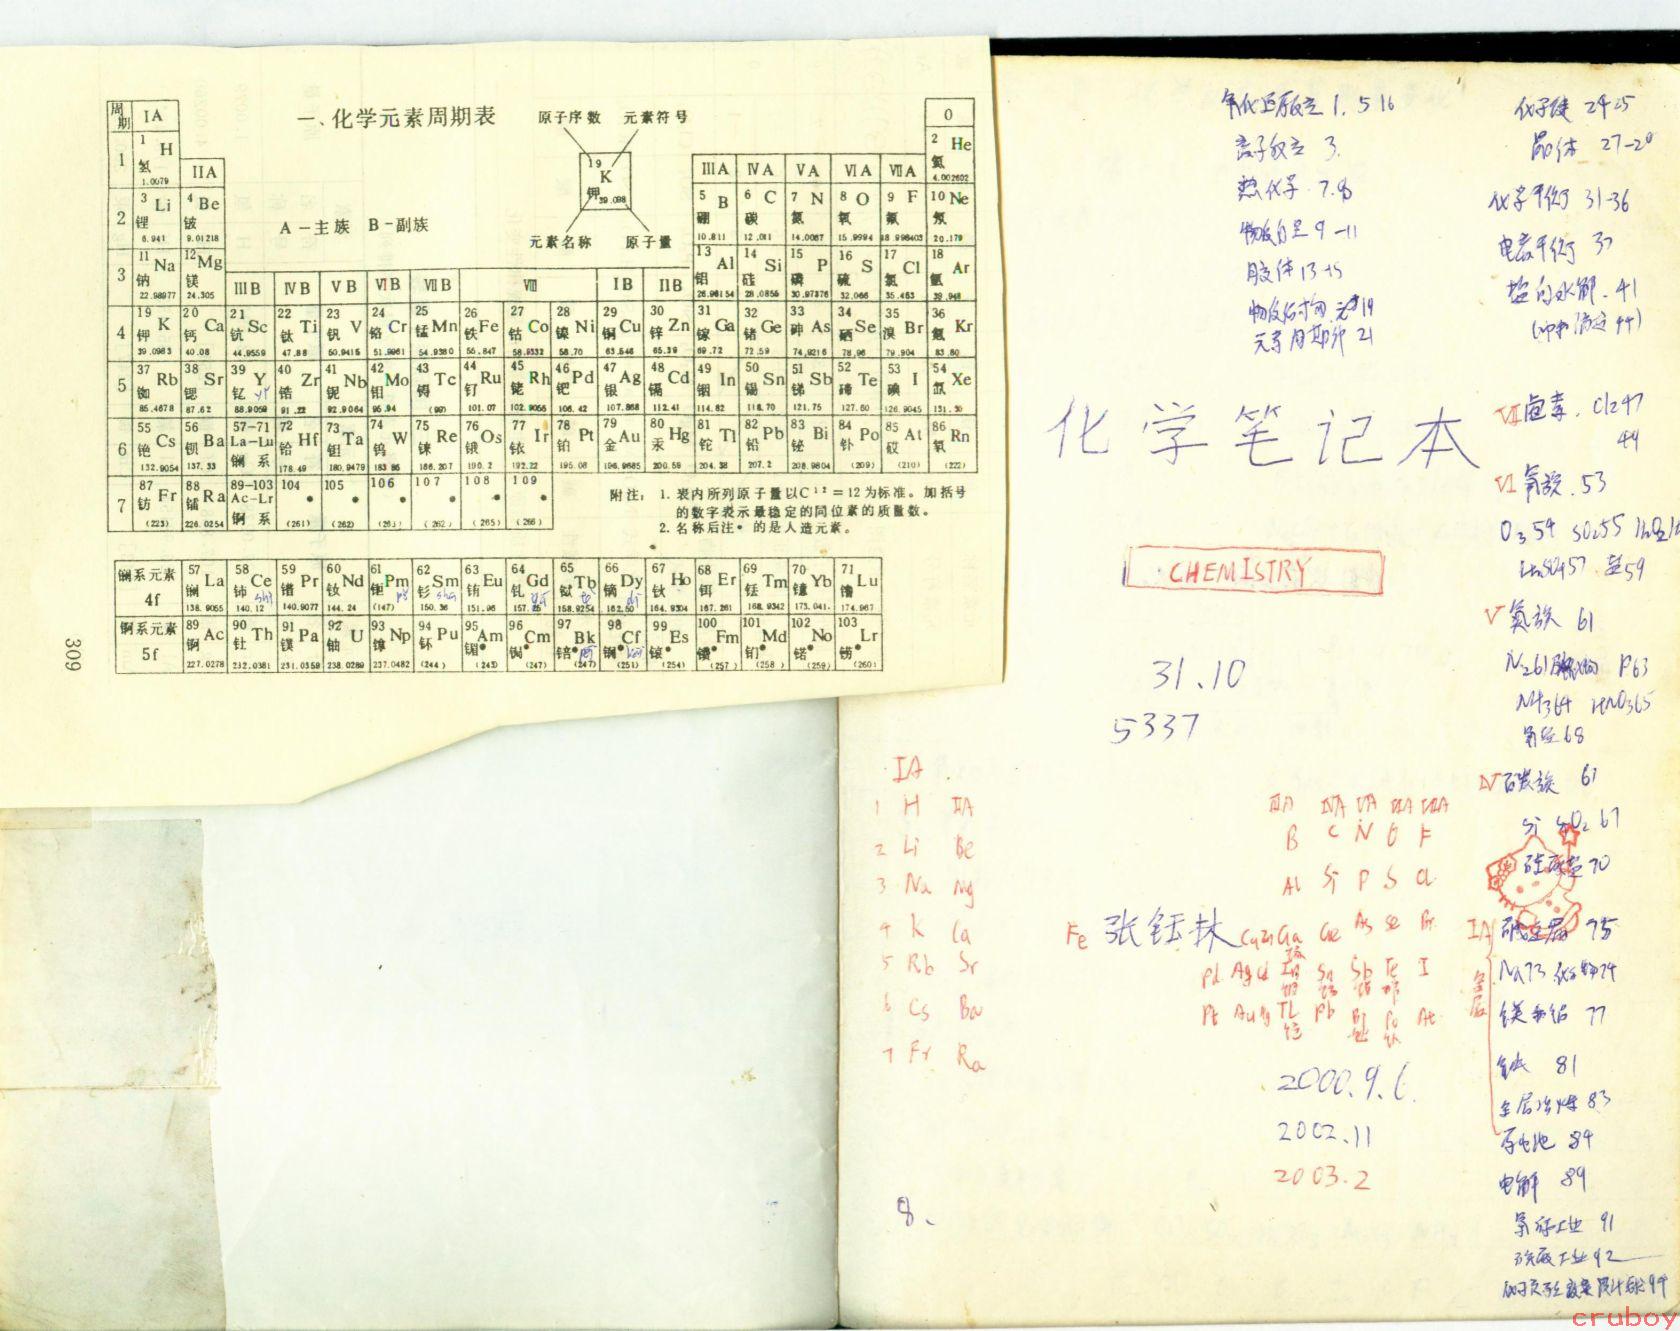 一、化学元素周期表
原子序数 元素符号
19
K
钾
39.098
元素名称 原子量
A－主族 B－副族
周期 IA 0
1 1 H 氢 1.0079 2 He 氦 4.002602
IIA IIIA IVA VA VIA VIIA
2 3 Li 锂 6.941 4 Be 铍 9.01218 5 B 硼 10.811 6 C 碳 12.011 7 N 氮 14.0067 8 O 氧 15.9994 9 F 氟 18.998403 10 Ne 氖 20.179
3 11 Na 钠 22.98977 12 Mg 镁 24.305 13 Al 铝 26.98154 14 Si 硅 28.0855 15 P 磷 30.97376 16 S 硫 32.066 17 Cl 氯 35.453 18 Ar 氩 39.948
IIIB IVB VB VIB VIIB VIII IB IIB
4 19 K 钾 39.0983 20 Ca 钙 40.08 21 Sc 钪 44.9559 22 Ti 钛 47.88 23 V 钒 50.9415 24 Cr 铬 51.9961 25 Mn 锰 54.9380 26 Fe 铁 55.847 27 Co 钴 58.9332 28 Ni 镍 58.70 29 Cu 铜 63.546 30 Zn 锌 65.39 31 Ga 镓 69.72 32 Ge 锗 72.59 33 As 砷 74.9216 34 Se 硒 78.96 35 Br 溴 79.904 36 Kr 氪 83.80
5 37 Rb 铷 85.4678 38 Sr 锶 87.62 39 Y 钇 88.9059 40 Zr 锆 91.22 41 Nb 铌 92.9064 42 Mo 钼 95.94 43 Tc 锝 44 Ru 钌 101.07 45 Rh 铑 102.9055 46 Pd 钯 106.42 47 Ag 银 107.868 48 Cd 镉 112.41 49 In 铟 114.82 50 Sn 锡 118.70 51 Sb 锑 121.75 52 Te 碲 127.60 53 I 碘 126.9045 54 Xe 氙 131.30
6 55 Cs 铯 132.9054 56 Ba 钡 137.33 57-71 La-Lu 镧系 72 Hf 铪 178.49 73 Ta 钽 180.9479 74 W 钨 183.85 75 Re 铼 186.207 76 Os 锇 190.2 77 Ir 铱 192.22 78 Pt 铂 195.08 79 Au 金 196.9665 80 Hg 汞 200.59 81 Tl 铊 204.38 82 Pb 铅 207.2 83 Bi 铋 208.9804 84 Po 钋 (209) 85 At 砹 (210) 86 Rn 氡 (222)
7 87 Fr 钫 (223) 88 Ra 镭 226.0254 89-103 Ac-Lr 锕系 104 • (261) 105 • (262) 106 • (263) 107 • (262) 108 • (265) 109 • (266)
附注： 1. 表内所列原子量以C¹²＝12为标准。加括号
的数字表示最稳定的同位素的质量数。
2. 名称后注• 的是人造元素。
镧系元素 4f 57 La 镧 138.9055 58 Ce 铈 140.12 59 Pr 镨 140.9077 60 Nd 钕 144.24 61 Pm 钷 (147) 62 Sm 钐 150.36 63 Eu 铕 151.96 64 Gd 钆 157.25 65 Tb 铽 158.9254 66 Dy 镝 162.50 67 Ho 钬 164.9304 68 Er 铒 167.261 69 Tm 铥 168.9342 70 Yb 镱 173.041 71 Lu 镥 174.967
锕系元素 5f 89 Ac 锕 227.0278 90 Th 钍 232.0381 91 Pa 镤 231.0359 92 U 铀 238.0289 93 Np 镎 237.0482 94 Pu 钚 (244) 95 Am 镅• (243) 96 Cm 锔• (247) 97 Bk 锫• (247) 98 Cf 锎• (251) 99 Es 锿• (254) 100 Fm 镄• (257) 101 Md 钔• (258) 102 No 锘• (259) 103 Lr 铹• (260)
309
氧化还原反应 1. 5 16
离子反应 3.
热化学 7.8
物质的量 9-11
胶体 13
19
元素周期律 21
化学键 24 25
晶体 27-28
化学平衡 31-36
电离平衡 37
盐的水解. 41
VII 卤素. Cl247
49
VI 氧族. 53
O354 SO255
H2SO457 59
V 氮族 61
N261 P63
NH364 HNO365
68
IV 碳族 61
Si SiO2 67
硅酸盐 70
IA 碱金属 75
Na73 化合物74
金属
镁和铝 77
铁 81
金属冶炼 83
原电池 84
电解 89
91
硫酸工业 92
化学实验 设计 94
化学笔记本
CHEMISTRY
31.10
5337
IA
1 H IIA IIIA IVA VA VIA VIIA
2 Li Be B C N O F
3 Na Mg Al Si P S Cl
4 K Ca Fe 张钰林 Cu Zn Ga Ge As Se Br
5 Rb Sr Pd Ag Cd In Sn Sb Te I
6 Cs Ba Pt Au Hg TL Pb Bi Po At
7 Fr Ra
2000.9.6.
2002.11
2003.2
8.
cruboy